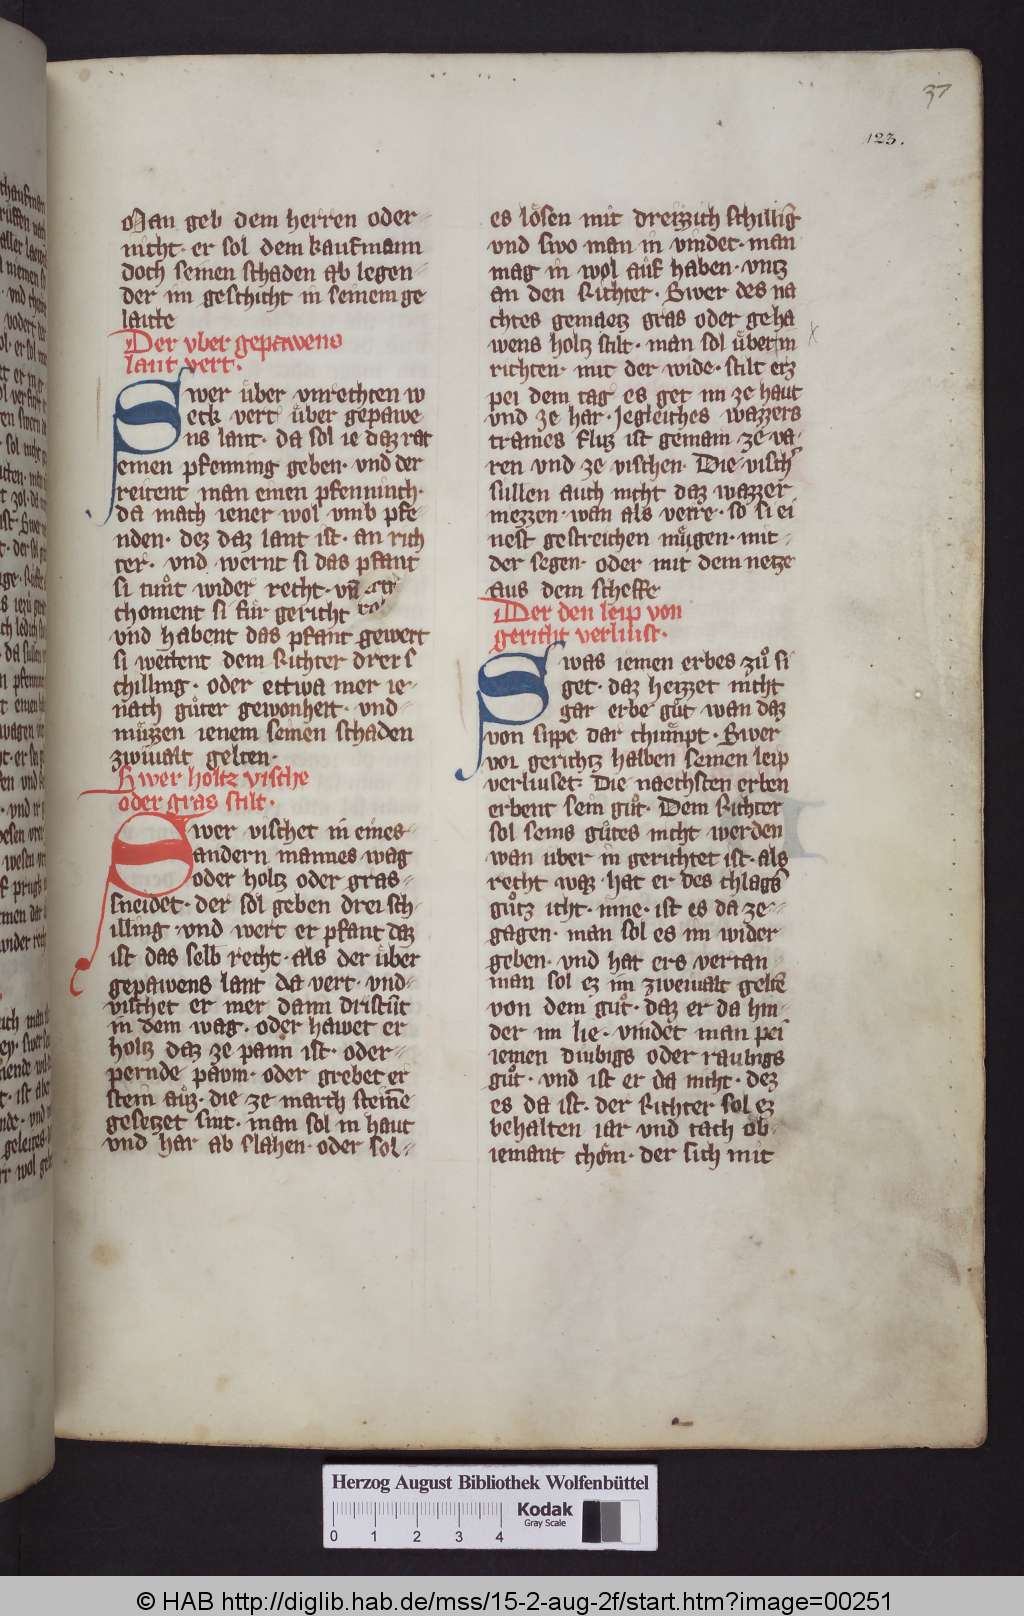 37
123.
Man geb dem herren oder
nicht· er sol dem kaufmann
doch seinen schaden ab legen
der im geschicht in seinem ge
laitte
Der vber gepawens
lant vert·
Swer über vnrechten w
eck vert über gepawe
ns lant· da sol ie daz rat
einen pfenning geben· vnd der
reitent man einen pfenninch·
da mach iener wol vmb pfe
nden· dez daz lant ist· an rich
ter· vnd wernt si das pfant
si tuͦnt wider recht· vn̄
choment si für gericht
vnd habent das pfant gewert
si wettent dem Richter drei s
chilling· oder ettwa mer ie
nach guͤter gewonheit· vnd
muͤzzen ienem seinen schaden
zwiualt gelten·
Swer holtz vische
oder gras stilt·
Swer vischet in eines
andern mannes wag
oder holtz oder gras
sneidet· der sol geben drei sch
illing· vnd wert er pfant daz
ist das selb recht· als der über
gepawens lant da vert· vnd
vischet er mer dann dristūt
in dem wag· oder hawet er
holtz daz ze pann ist· oder
pernde paͮm· oder grebet er
stein auͤz· die ze march steine
gesetzet sint· man sol in haut
vnd har ab slahen· oder sol
es loͤsen mit dreizzich schillīg
vnd swo man in vindet· man
mag in wol auf haben· vntz
an den Richter· Swer des na
chtes gemaetz gras oder geha
wens holtz stilt· man sol über in
richten· mit der wide· stilt erz
pei dem tag es get im ze haut
vnd ze har· Jegleiches wazzers
trames fluz ist gemain ze va
ren vnd ze vischen· Die visch
sullen auch nicht daz wazzer
mezzen· wan als verre· so si ei
nest gestreichen muͤgen· mit
der segen· oder mit dem netze
aus dem scheffe
Der den leip von
gericht verliust·
Swas iemen erbes zuͦ si
get· daz heizzet nicht
gar erbe guͦt wan daz
von sippe dar chuͤmpt· Swer
vor gerichtz halben seinen leip
verliuset· Die naechsten erben
erbent sein guͦt· Dem Richter
sol seins guͦtes nicht werden
wan über in gerichtet ist· als
recht waz· hat er des chlags
guͦtz icht· inne· ist es da ze
gagen· man sol es im wider
geben· vnd hat ers vertan
man sol ez im zweiualt geltē
von dem guͦt· daz er da hin
der im lie· vindet man pei
iemen diubigs oder raubigs
guͦt· vnd ist er da nicht· dez
es da ist· der Richter sol ez
behalten iar vnd tach ob
iemant chom· der sich mit
Herzog August Bibliothek Wolfenbüttel
0 1 2 3 4
Kodak
Gray Scale
© HAB http://diglib.hab.de/mss/15-2-aug-2f/start.htm?image=00251